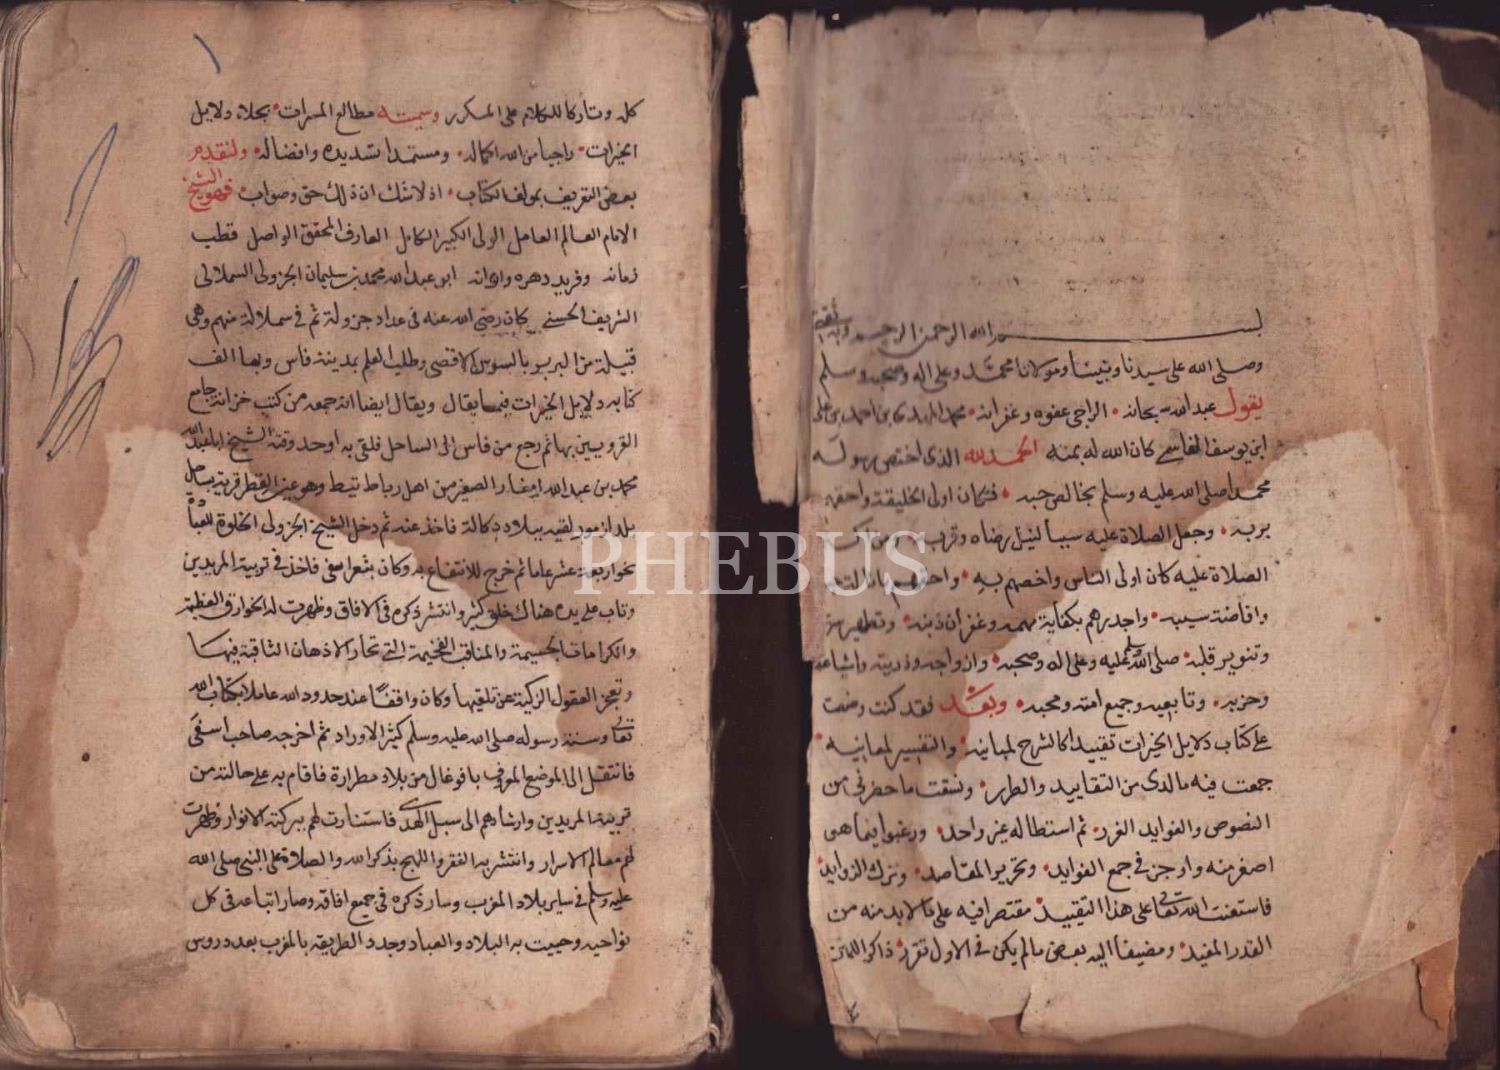 بسم الله الرحمن الرحيم وبه ثقتي
وصلى الله على سيدنا ونبينا ومولانا محمد وعلى اله وصحبه وسلم
يقول عبد الله سبحانه الراجى عفوه وغفرانه محمد المهدى بن احمد بن على
ابن يوسف الفاسى كان الله له بمنه الحمد لله الذى اختص رسوله
محمدا صلى الله عليه وسلم بخالص حبه فكان اولى الخليقة واحقه
بربه وجعل الصلاة عليه سببا لنيل رضاه وقربه ومن اكثر
الصلاة عليه كان اولى الناس واخصهم به واحقهم
وافاضة سيبه واجدرهم بكفاية همه وغفران ذنبه وتطهير
وتنوير قلبه صلى الله عليه وعلى اله وصحبه وازواجه وذريته واشياعه
وحزبه وتابعيه وجميع امته ومحبه وبعد فقد كنت وضعت
على كتاب دلايل الخيرات تقييدا كالشرح لمبانيه والتفسير لمعانيه
جمعت فيه مالدى من التقاييد والطرر ونسقت ما حضرنى من
النصوص والفوايد الغرر ثم استطاله غير واحد ورغبوا فيما هى
اصغر منه واوجز فى جمع الفوايد وتحرير المقاصد وترك الزوايد
فاستعنت الله تعالى على هذا التقييد مقتصرا فيه على مالا بد منه من
القدر المفيد ومضيفا اليه بعض مالم يكن فى الاول تقرر ذاكرا
كله وتاركا للكلام على المكرر وسميته مطالع المسرات بجلاء دلايل
الخيرات راجيا من الله اكماله ومستمدا تسديده وافضاله ولنقدم
بعض التعريف بمولف الكتاب اذ لا شك ان ذلك حق وصواب فهو الشيخ
الامام العالم العامل الولى الكبير الكامل العارف المحقق الواصل قطب
زمانه وفريد دهره واوانه ابو عبد الله محمد بن سليمان الجزولى السملالى
الشريف الحسنى كان رضى الله عنه فى عداد جزولة ثم فى سملالة منهم وهى
قبيلة من البربر بالسوس الاقصى وطلب العلم بمدينة فاس وبها الف
كتابه دلايل الخيرات فيما يقال ويقال ايضا انه جمعه من كتب خزانة جامع
القرويين بها ثم رجع من فاس الى الساحل فلقى به اوحد وقته الشيخ ابا عبد الله
محمد بن عبد الله امغار الصغير من اهل رباط تيط وهو عين القطر قرية بساحل
بلد ازمور لقيه ببلاد دكالة فاخذ عنه ثم دخل الشيخ الجزولى الخلوة للعبادة
نحو اربعة عشر عاما ثم خرج للانتفاع به وكان بثغر اسفى فاخذ فى تربية المريدين
وتاب على يده هناك خلق كثير وانتشر ذكره فى الافاق وظهرت له الخوارق العظيمة
والكرامات الجسيمة والمناقب الفخيمة التى تحار الاذهان الثاقبة فيها
وتعجز العقول الزكية عن تلقيها وكان واقفا عند حدود الله عاملا بكتاب الله
تعالى وسنة رسوله صلى الله عليه وسلم كثير الاوراد ثم اخرجه صاحب اسفى
فانتقل الى الموضع المعروف بافوغال من بلاد مطرازة فاقام به على حالته من
تربية المريدين وارشادهم الى سبيل الهدى فاستنارت لهم ببركته الانوار وظهرت
لهم معالم الاسرار وانتشر به الفقر واللهج بذكر الله والصلاة على النبى صلى الله
عليه وسلم فى ساير بلاد المغرب وسار ذكره فى جميع افاقه وصار اتباعه فى كل
نواحيه وحييت به البلاد والعباد وجدد الطريقه بالمغرب بعد دروس
PHEBUS